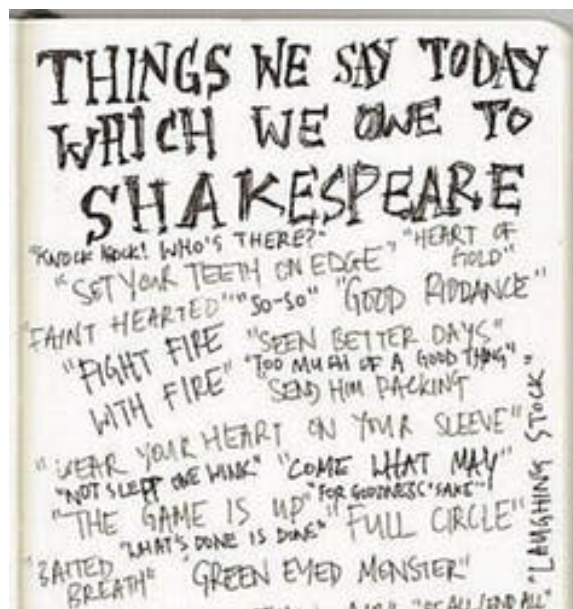 THINGS WE SAY TODAY
WHICH WE OWE TO
SHAKESPEARE
"KNOCK KNOCK! WHO'S THERE?"
"HEART OF
GOLD"
"SET YOUR TEETH ON EDGE"
"FAINT HEARTED"
"SO-SO"
"GOOD RIDDANCE"
"FIGHT FIRE
WITH FIRE"
"SEEN BETTER DAYS"
"TOO MUCH OF A GOOD THING"
"SEND HIM PACKING
"WEAR YOUR HEART ON YOUR SLEEVE"
"NOT SLEPT ONE WINK"
"COME WHAT MAY"
"LAUGHING STOCK"
"THE GAME IS UP"
"FOR GOODNESS' SAKE"
"WHAT'S DONE IS DONE"
"FULL CIRCLE"
"BAITED
BREATH"
"GREEN EYED MONSTER"
"BE ALL/END ALL"